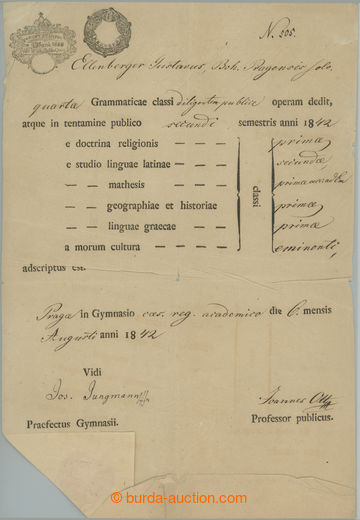 N. 205.
Ellenberger Gustavus, Boh. Pragensis
quartae Grammaticae classi diligenter publice operam dedit,
atque in tentamine publico secundi semestris anni 1842
e doctrina religionis — — — primae
e studio linguae latinae — — — secundae,
— — mathesis — — — — primae
— — geographiae et historiae classi primae
— — linguae graecae — — primae
a morum cultura — — — — eminenti,
adscriptus est.
Pragae in Gymnasio caes. reg. academico die 6. mensis
Augusti anni 1842
Vidi
Jos. Jungmann
Joannes
Praefectus Gymnasii.
Professor publicus.
burda-auction.com